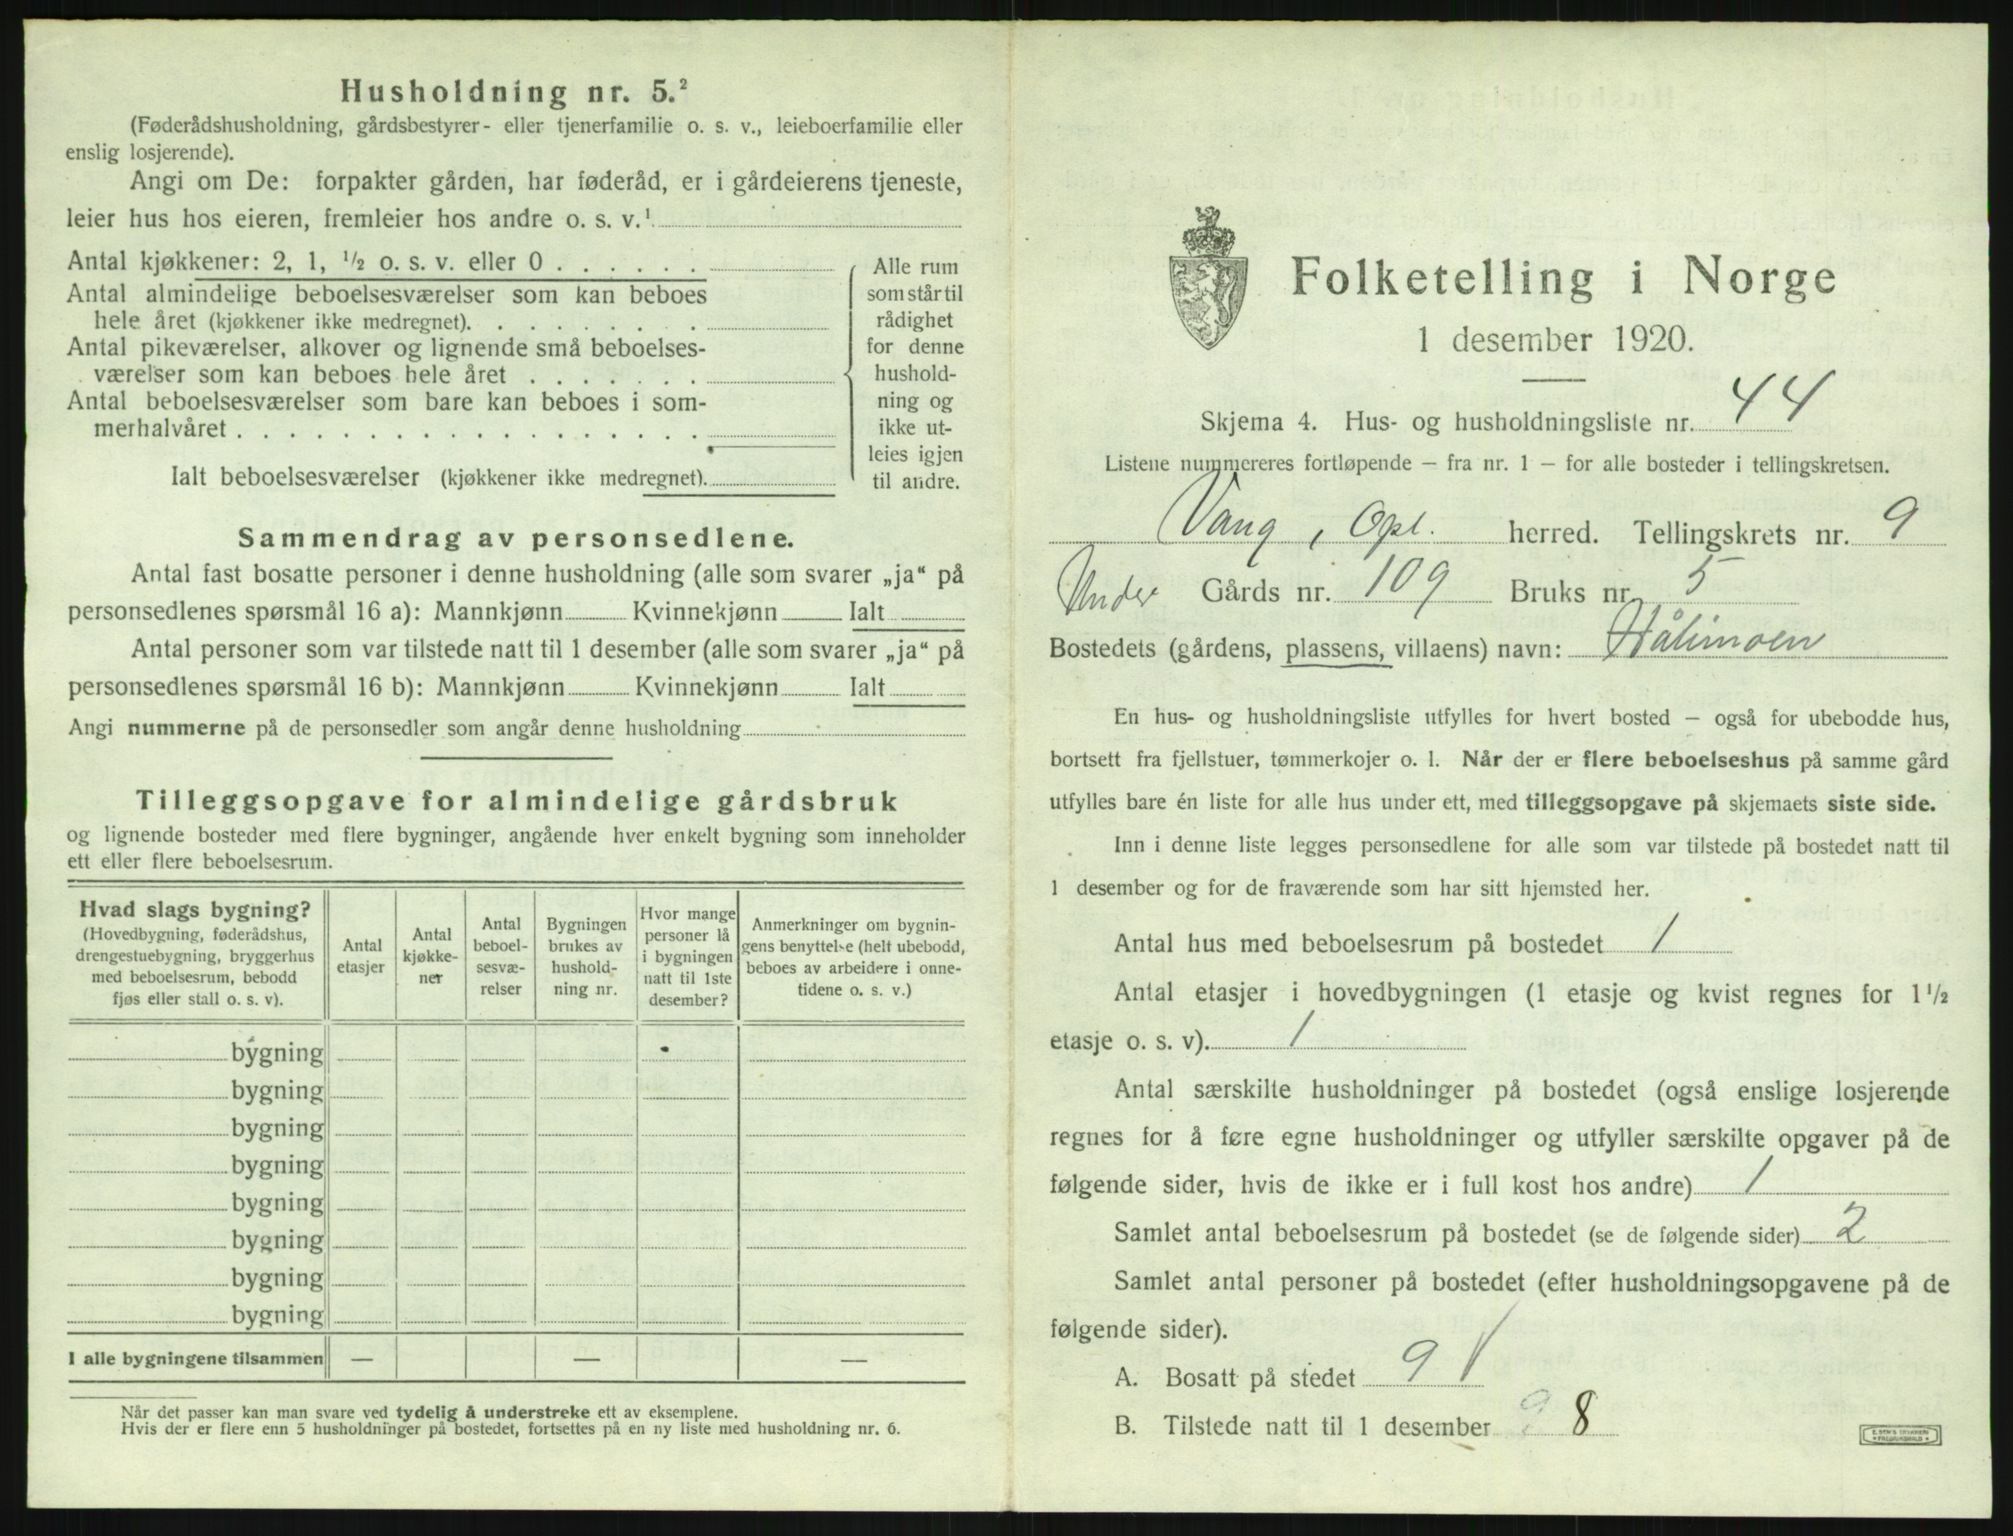 Husholdning nr. 5.²
(Føderådshusholdning, gårdsbestyrer- eller tjenerfamilie o. s. v., leieboerfamilie eller
enslig losjerende).
Angi om De: forpakter gården, har føderåd, er i gårdeierens tjeneste,
leier hus hos eieren, fremleier hos andre o. s. v.¹
Antal kjøkkener: 2, 1, ½ o. s. v. eller 0 . . . . . .
Antal almindelige beboelsesværelser som kan beboes
hele året (kjøkkener ikke medregnet). . . . . . . . .
Antal pikeværelser, alkover og lignende små beboelses-
værelser som kan beboes hele året . . . . . . .
Antal beboelsesværelser som bare kan beboes i som-
merhalvåret . . . . . . . . . . . . . . . . . .
Ialt beboelsesværelser (kjøkkener ikke medregnet).
Alle rum
som står til
rådighet
for denne
hushold-
ning og
ikke ut-
leies igjen
til andre.
Sammendrag av personsedlene.
Antal fast bosatte personer i denne husholdning (alle som svarer „ja“ på
personsedlenes spørsmål 16 a): Mannkjønn Kvinnekjønn Ialt
Antal personer som var tilstede natt til 1 desember (alle som svarer „ja“ på
personsedlenes spørsmål 16 b): Mannkjønn Kvinnekjønn Ialt
Angi nummerne på de personsedler som angår denne husholdning
Tilleggsopgave for almindelige gårdsbruk
og lignende bosteder med flere bygninger, angående hver enkelt bygning som inneholder
ett eller flere beboelsesrum.
Hvad slags bygning?
(Hovedbygning, føderådshus,
drengestuebygning, bryggerhus
med beboelsesrum, bebodd
fjøs eller stall o. s. v).
Antal
etasjer
Antal
kjøkke-
ner
Antal
beboel-
sesvæ-
relser
Bygningen
brukes av
hushold-
ning nr.
Hvor mange
personer lå
i bygningen
natt til 1ste
desember?
Anmerkninger om bygnin-
gens benyttelse (helt ubebodd,
beboes av arbeidere i onne-
tidene o. s. v.)
bygning
bygning
bygning
bygning
bygning
bygning
bygning
bygning
I alle bygningene tilsammen — — —
Når det passer kan man svare ved tydelig å understreke ett av eksemplene.
Hvis der er flere enn 5 husholdninger på bostedet, fortsettes på en ny liste med husholdning nr. 6.
Folketelling i Norge
1 desember 1920.
Skjema 4. Hus- og husholdningsliste nr. 44
Listene nummereres fortløpende – fra nr. 1 – for alle bosteder i tellingskretsen.
Vang, Opl. herred. Tellingskrets nr. 9
Under Gårds nr. 109 Bruks nr. 5
Bostedets (gårdens, plassens, villaens) navn: Hålimoen
En hus- og husholdningsliste utfylles for hvert bosted – også for ubebodde hus,
bortsett fra fjellstuer, tømmerkojer o. l. Når der er flere beboelseshus på samme gård
utfylles bare én liste for alle hus under ett, med tilleggsopgave på skjemaets siste side.
Inn i denne liste legges personsedlene for alle som var tilstede på bostedet natt til
1 desember og for de fraværende som har sitt hjemsted her.
Antal hus med beboelsesrum på bostedet 1
Antal etasjer i hovedbygningen (1 etasje og kvist regnes for 1½
etasje o. s. v). 1
Antal særskilte husholdninger på bostedet (også enslige losjerende
regnes for å føre egne husholdninger og utfyller særskilte opgaver på de
følgende sider, hvis de ikke er i full kost hos andre) 1
Samlet antal beboelsesrum på bostedet (se de følgende sider) 2
Samlet antal personer på bostedet (efter husholdningsopgavene på de
følgende sider).
A. Bosatt på stedet 9
B. Tilstede natt til 1 desember 9 8